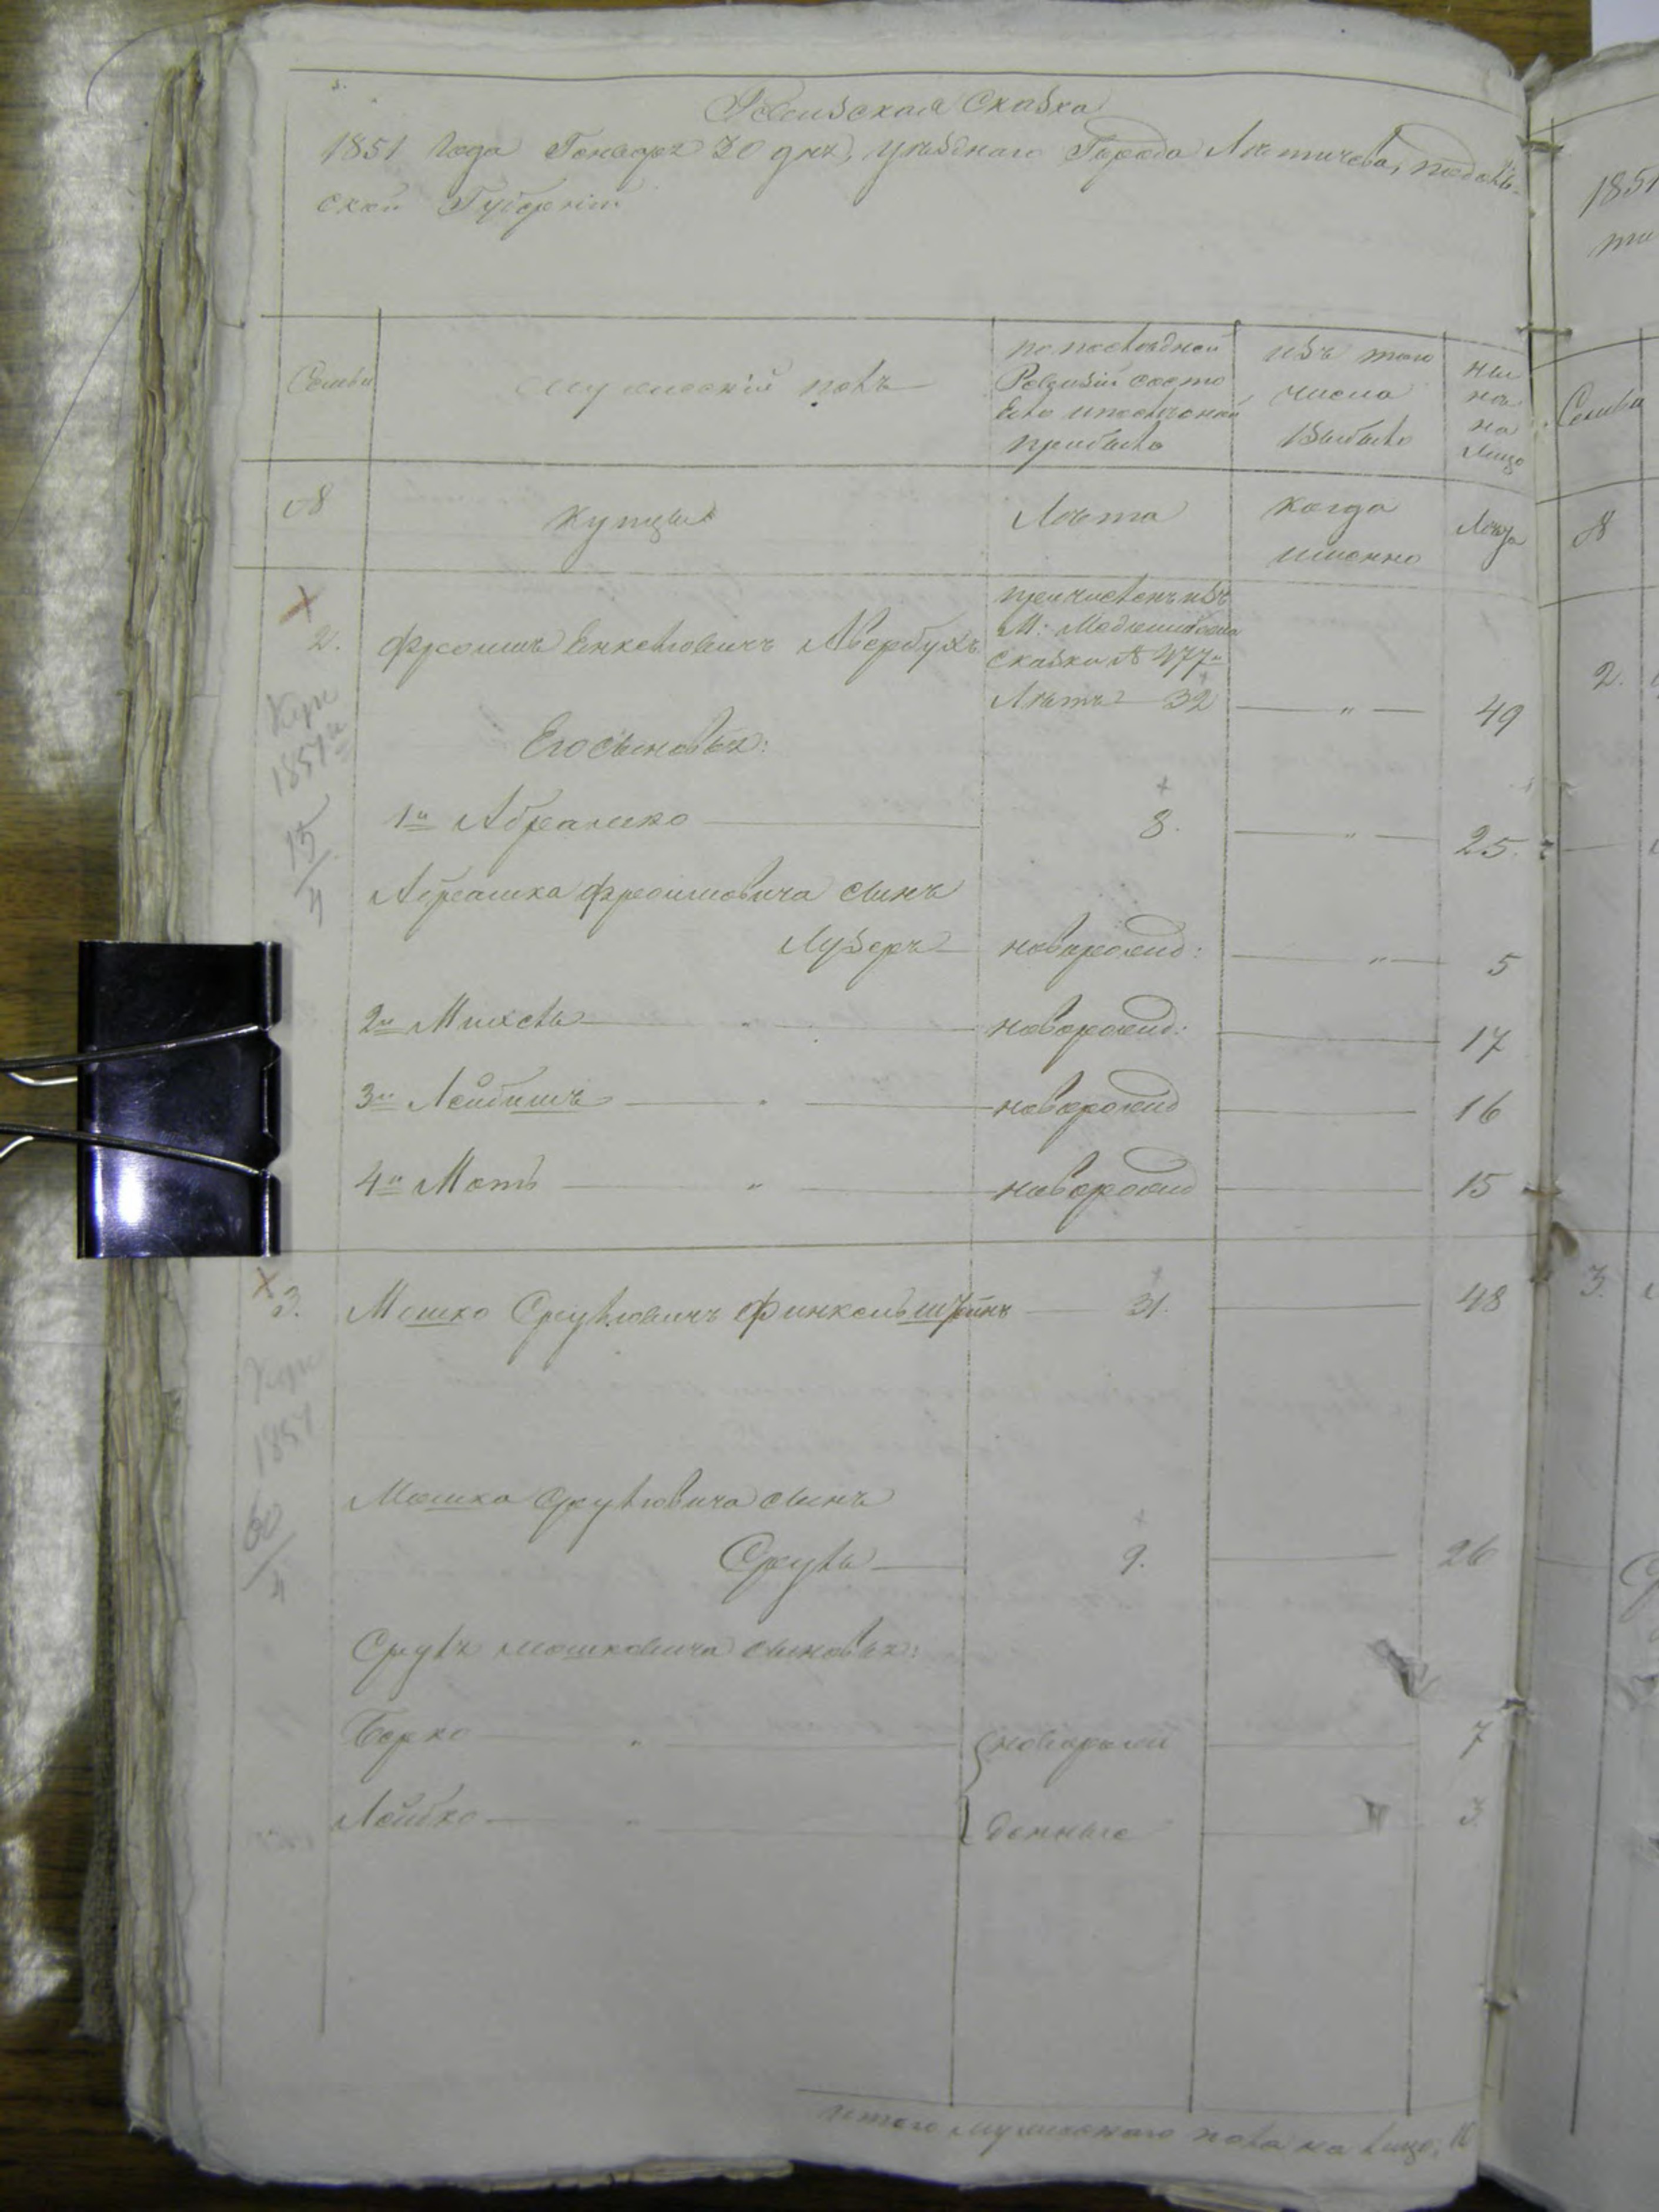 Ревизская Сказка
1851 года Генваря 30 дня, уѣзднаго Города Летичева, подоль-
ской Губерніи
Семьи
мужескій полъ
по послѣдней
Ревизіи состо
яло и послѣ оной
прибыло
изъ того
числа
Выбыло
ны
нѣ
на
Лицо
№
Купцы
Лѣта
когда
именно
Лѣта
2.
Фроимъ Янкелiовичъ Авербухъ
причисленъ изъ
М:
сказки № 477
Лѣтъ 32 — " — 49
Его сыновья:
1й Абрамко — 8. — " — 25.
Абрамка Фроимовича сынъ
Лузеръ — новорожд: — " — 5
2й Михель — " — новорожд: — 17
3й Лейбишъ — " — новорожд — 16
4й Моть — " — новорожд — 15
3. Мошко Сруліовичъ Финкельштейнъ — 31. — 48
Мошка Сруліовича сынъ
Сруль — 9. — 26
Сруля Мошковича сыновья:
Берко — " — новорож — 7
Лейбко — " — денные — 3
1851
15
4
1851
60
4
итого мужескаго пола на лицо: 10
1851
Семьи
№
2.
3.